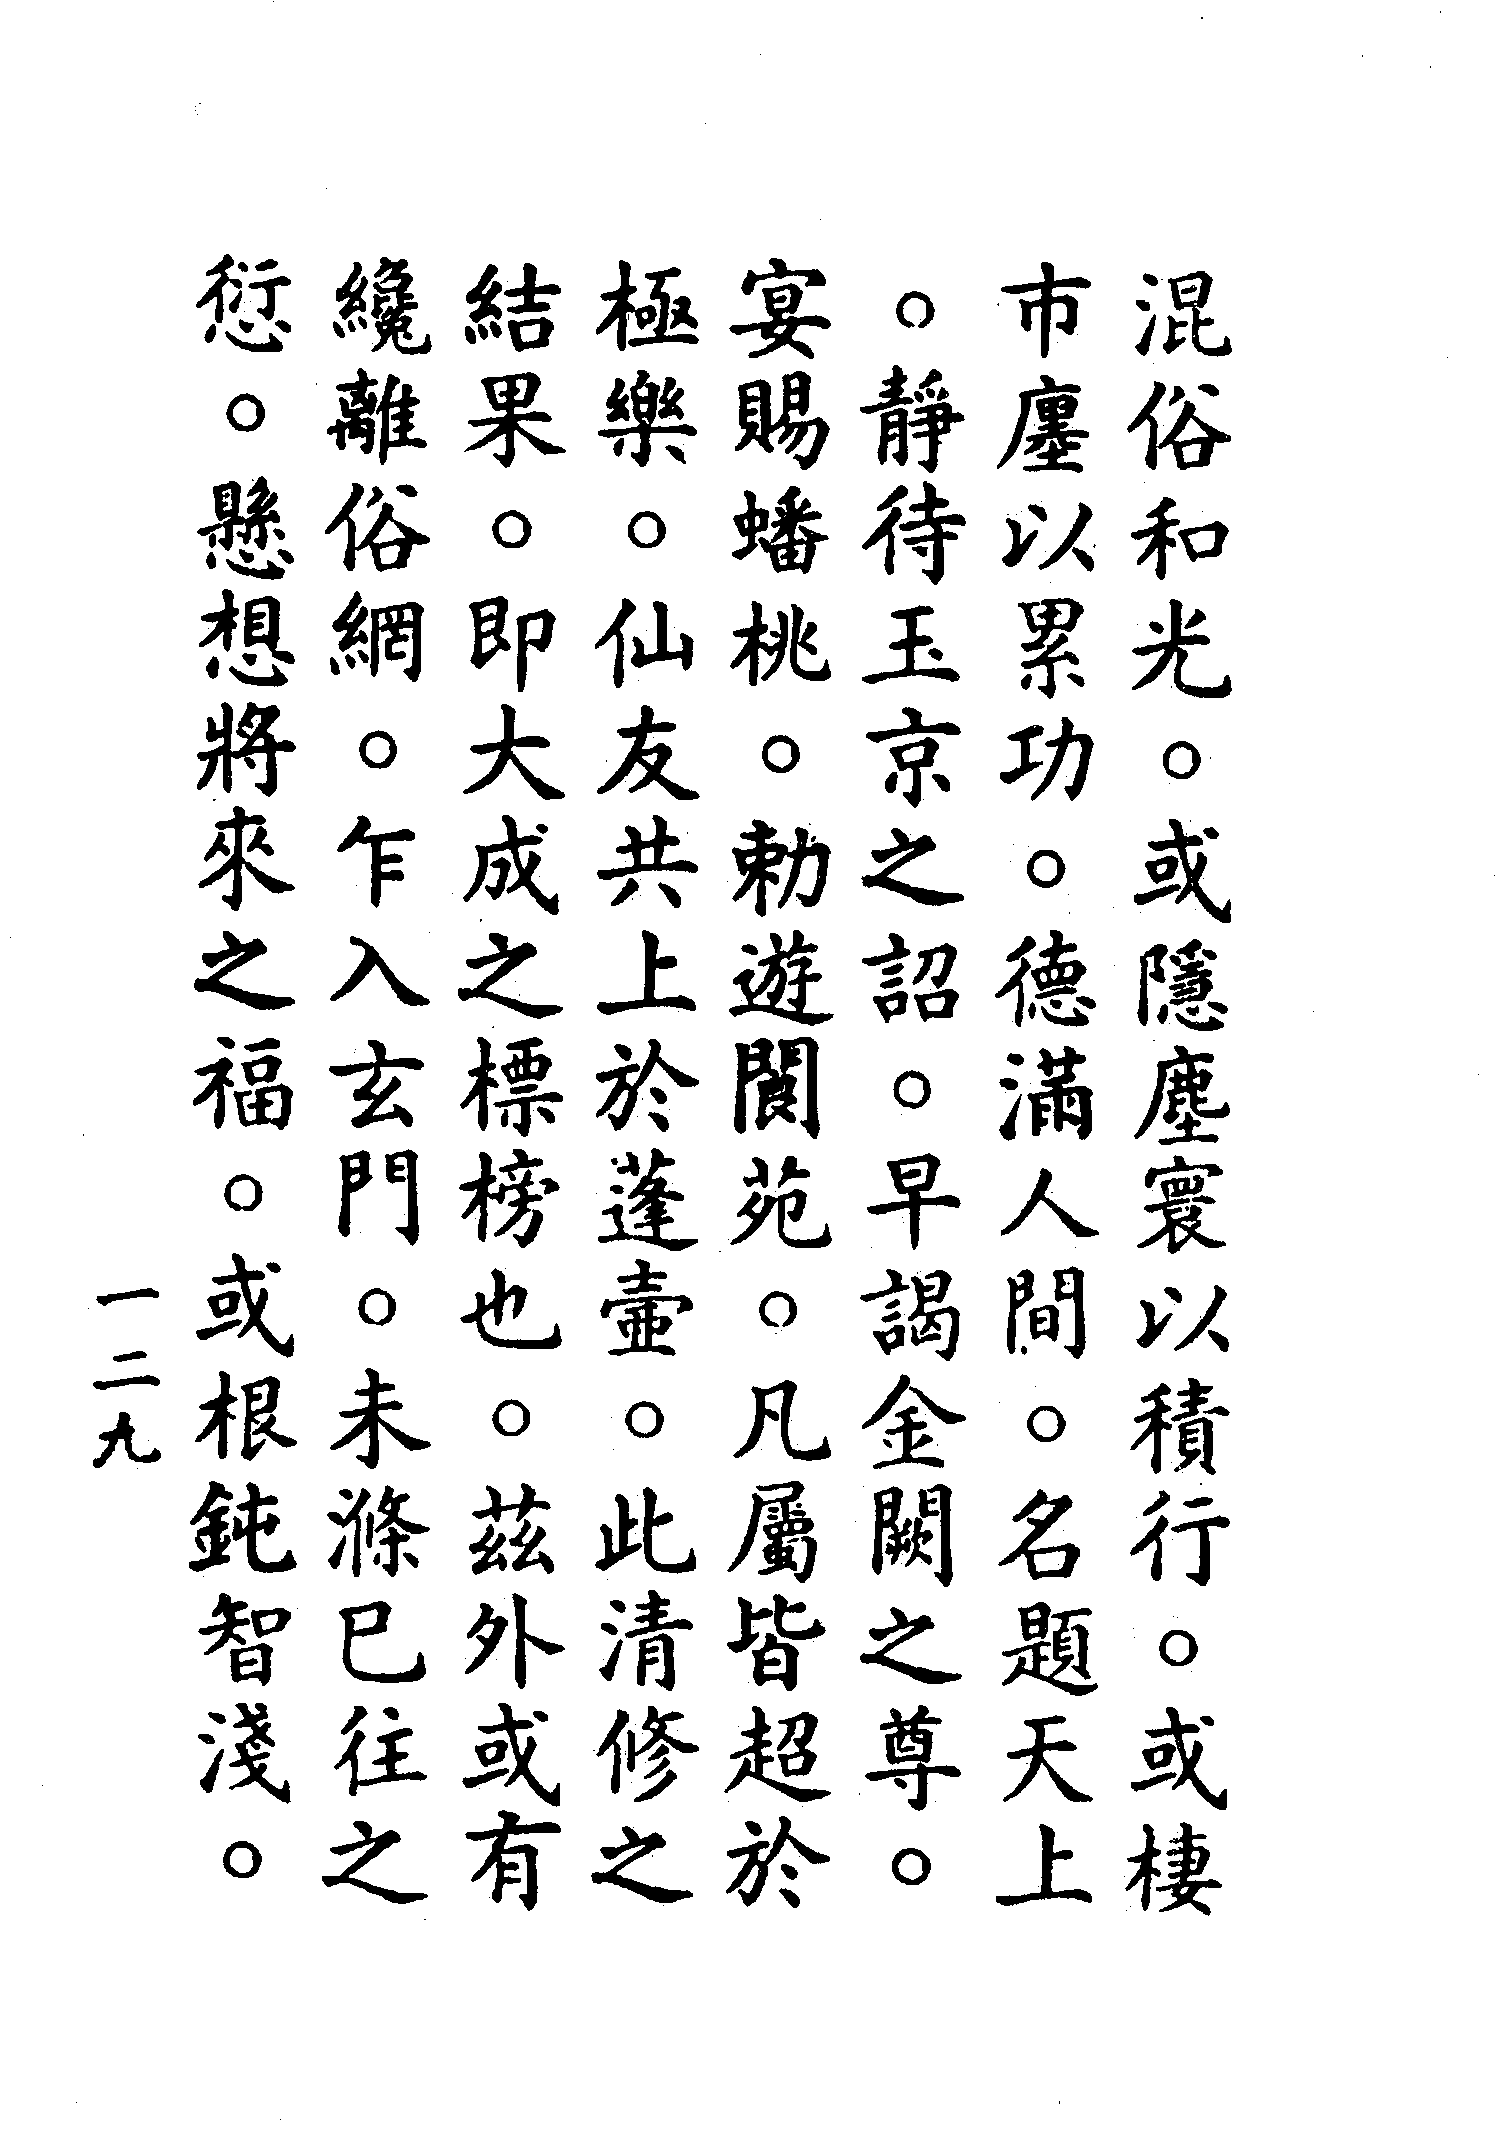 混俗和光。或隱塵寰以積行。或棲
市廛以累功。德滿人間。名題天上
。靜待玉京之詔。早謁金闕之尊。
宴賜蟠桃。勅遊閬苑。凡屬皆超於
極樂。仙友共上於蓬壺。此清修之
結果。即大成之標榜也。茲外或有
纔離俗網。乍入玄門。未滌已往之
愆。懸想將來之福。或根鈍智淺。
一二九